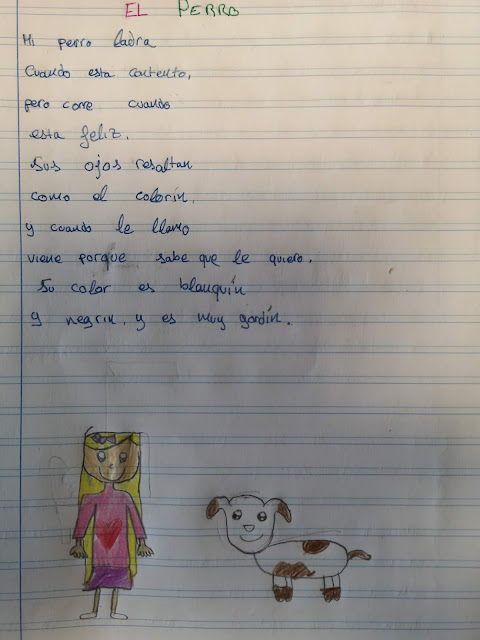 EL PERRO
Mi perro ladra
Cuando esta contento,
pero corre cuando
esta feliz.
Sus ojos resaltan
como el colorín,
y cuando le llamo
viene porque sabe que le quiero.
Su color es blanquín
y negrin, y es muy gordín.